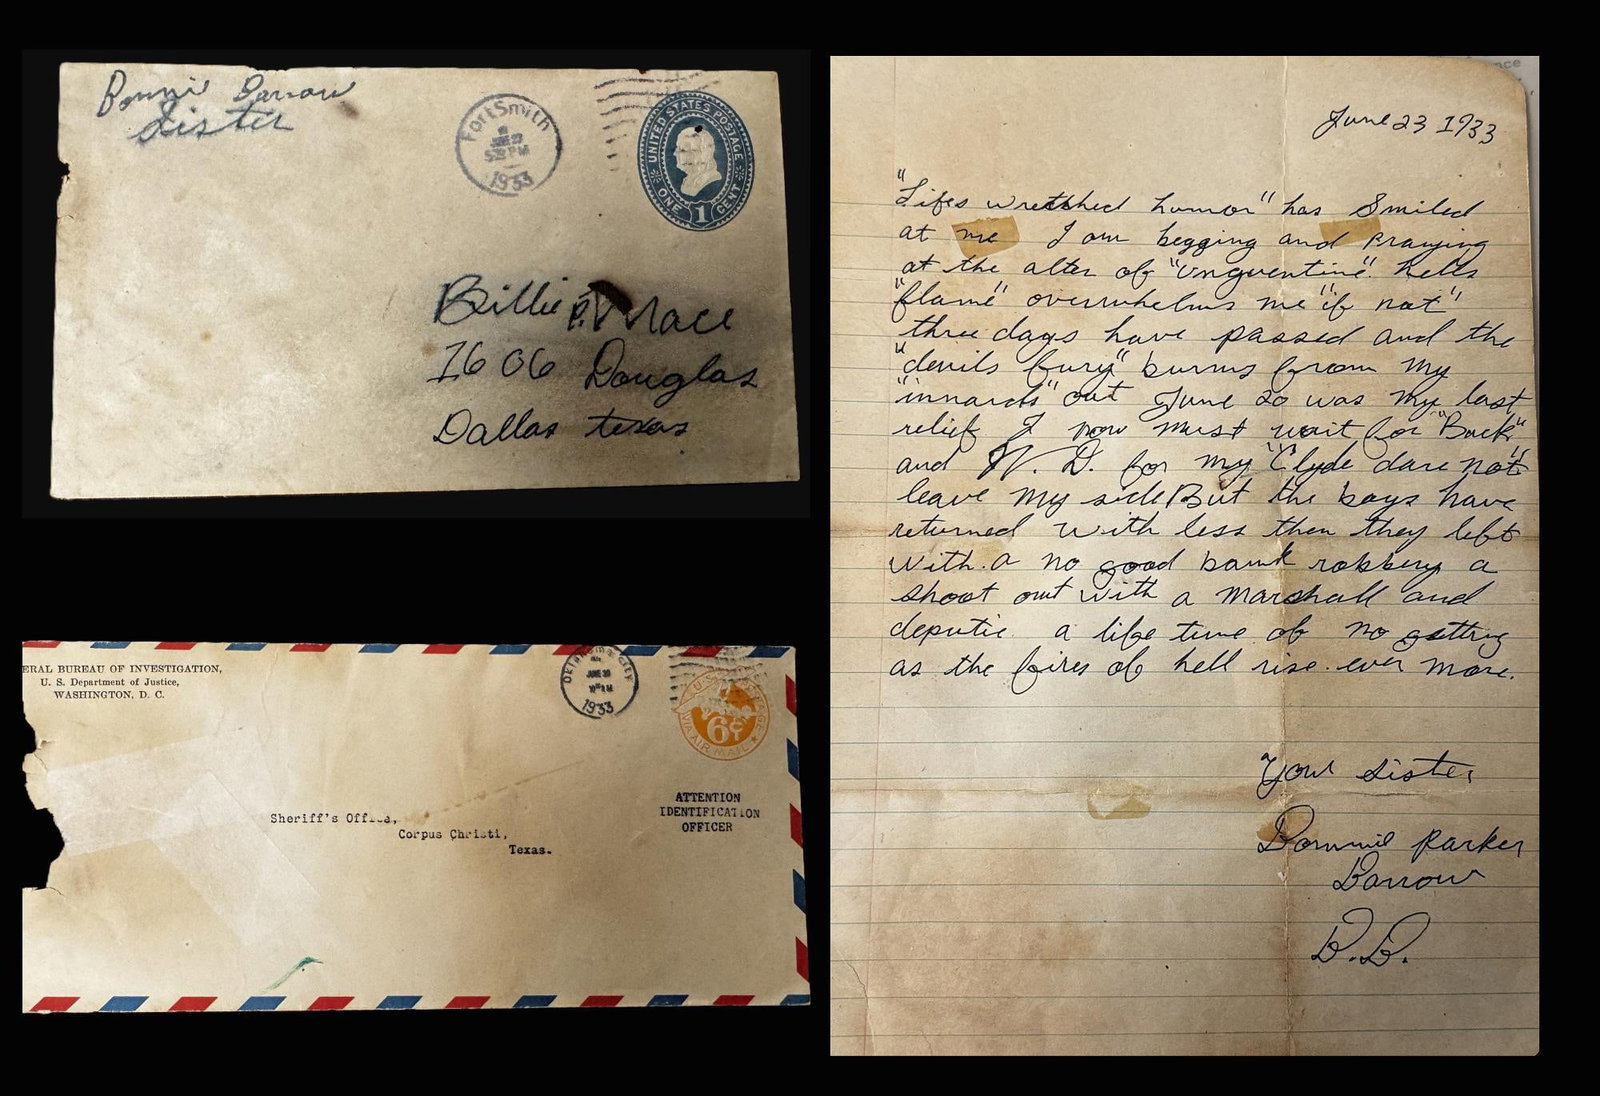 Bonnie Barrow
Sister
Fort Smith
JUN 23
5 PM
1933
UNITED STATES POSTAGE
ONE 1 CENT
Billie P. Mace
1606 Douglas
Dallas texas
ERAL BUREAU OF INVESTIGATION,
U. S. Department of Justice,
WASHINGTON, D. C.
OKLAHOMA CITY
JUN 30
1933
U.S. POSTAGE
6¢
VIA AIR MAIL
ATTENTION
IDENTIFICATION
OFFICER
Sheriff's Office,
Corpus Christi,
Texas.
nce
June 23 1933
"Lifes wretched humor" has Smiled
at me I am begging and Praying
at the alter of "Unguentine". hells
"flame" overwhelms me "if not"
three days have passed and the
"devils fury" burns from my
"innards" out June 20 was my last
relief I now must wait for "Buck"
and W. D. for my "Clyde dare not"
leave my side But the boys have
returned with less then they left
with. a no good bank robbery a
shoot out with a Marshall and
deputie. a life time of no getting
as the fires of hell rise. ever more.
Your Sister
Bonnie Parker
Barrow
B.B.